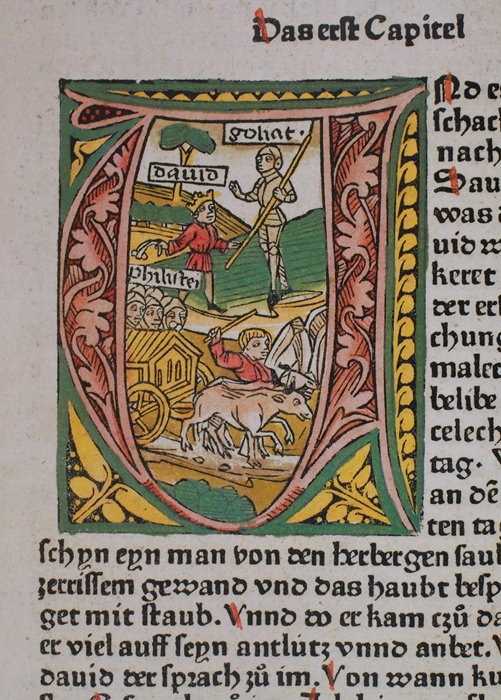 Das erst Capitel
goliat.
dauid
philiste
Nd e
schach
nach
Sau
was
uid w
keret
der er
chung
malec
belibe
celech
tag. V
an dē
ten tag
schyn eyn man von den herbergen sau
zerrissem gewand vnd das haubt besp
get mit staub. Vnnd do er kam czů da
er viel auff seyn antlutz vnnd anbet. V
dauid der sprach zů im. Von wann ku